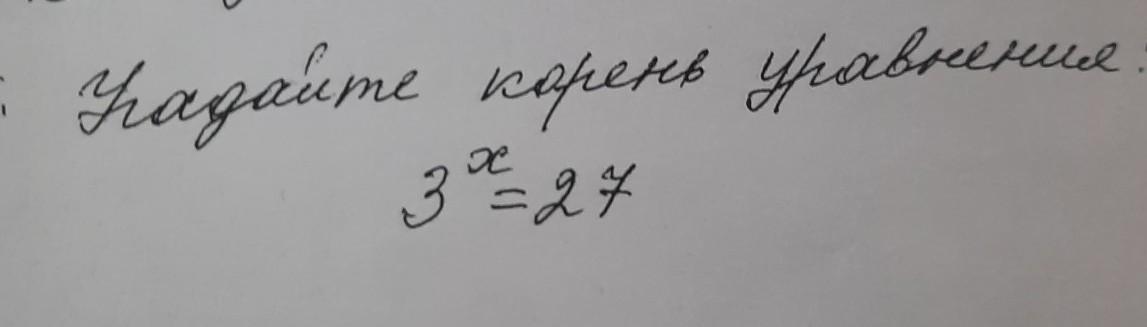 Угадайте корень уравнения:
3ˣ=27